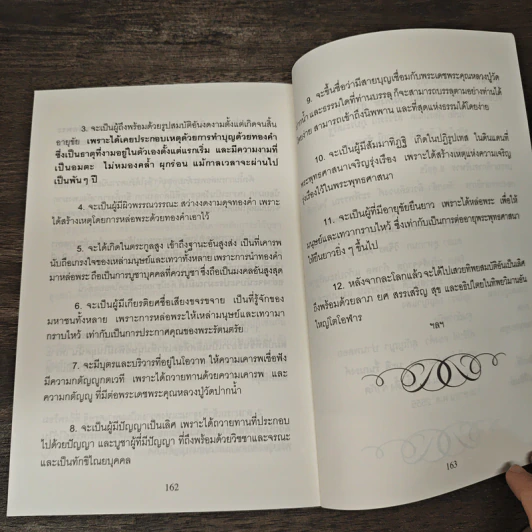 3. จะเป็นผู้ถึงพร้อมด้วยรูปสมบัติอันงดงามตั้งแต่เกิดจนสิ้น
อายุขัย เพราะได้เคยประกอบเหตุด้วยการทำบุญด้วยทองคำ
ซึ่งเป็นธาตุที่งามอยู่ในตัวเองตั้งแต่แรกเริ่ม และมีความงามที่
เป็นอมตะ ไม่หมองคล้ำ ผุกร่อน แม้กาลเวลาจะผ่านไป
เป็นพันๆ ปี
4. จะเป็นผู้มีผิวพรรณวรรณะ สว่างงดงามดุจทองคำ เพราะ
ได้สร้างเหตุโดยการหล่อพระด้วยทองคำเอาไว้
5. จะได้เกิดในตระกูลสูง เข้าถึงฐานะอันสูงส่ง เป็นที่เคารพ
นับถือเกรงใจของเหล่ามนุษย์และเทวาทั้งหลาย เพราะการนำทองคำ
มาหล่อพระ ถือเป็นการบูชาบุคคลที่ควรบูชา ซึ่งถือเป็นมงคลอันสูงสุด
6. จะเป็นผู้มีเกียรติยศชื่อเสียงขจรขจาย เป็นที่รู้จักของ
มหาชนทั้งหลาย เพราะการหล่อพระให้เหล่ามนุษย์และเทวามา
กราบไหว้ เท่ากับเป็นการประกาศคุณของพระรัตนตรัย
7. จะมีบุตรและบริวารที่อยู่ในโอวาท ให้ความเคารพเชื่อฟัง
มีความกตัญญูกตเวที เพราะได้ถวายทานด้วยความเคารพ และ
ความกตัญญู ที่มีต่อพระเดชพระคุณหลวงปู่วัดปากน้ำ
8. จะเป็นผู้มีปัญญาเป็นเลิศ เพราะได้ถวายทานที่ประกอบ
ไปด้วยปัญญา และบูชาผู้ที่มีปัญญา ที่ถึงพร้อมด้วยวิชชาและจรณะ
และเป็นทักขิไณยบุคคล
162
9. จะขึ้นชื่อว่ามีสายบุญเชื่อมกับพระเดชพระคุณหลวงปู่วัด
ปากน้ำ และธรรมใดที่ท่านบรรลุ ก็จะสามารถบรรลุตามอย่างท่านได้
โดยง่าย สามารถเข้าถึงนิพพาน และที่สุดแห่งธรรมได้โดยง่าย
10. จะเป็นผู้มีสัมมาทิฏฐิ เกิดในปฏิรูปเทส ในดินแดนที่
พระพุทธศาสนาเจริญรุ่งเรือง เพราะได้สร้างเหตุแห่งความเจริญ
รุ่งเรืองไว้ในพระพุทธศาสนา
11. จะเป็นผู้ที่มีอายุขัยยืนยาว เพราะได้หล่อพระ เพื่อให้
มนุษย์และเทวากราบไหว้ ซึ่งเท่ากับเป็นการต่ออายุพระพุทธศาสนา
ให้ยืนยาวยิ่งๆ ขึ้นไป
12. หลังจากละโลกแล้วจะได้ไปเสวยทิพยสมบัติอันเป็นเลิศ
ถึงพร้อมด้วยลาภ ยศ สรรเสริญ สุข และอธิปไตยในทิพยวิมานอัน
ใหญ่โตโอฬาร
ฯลฯ
163